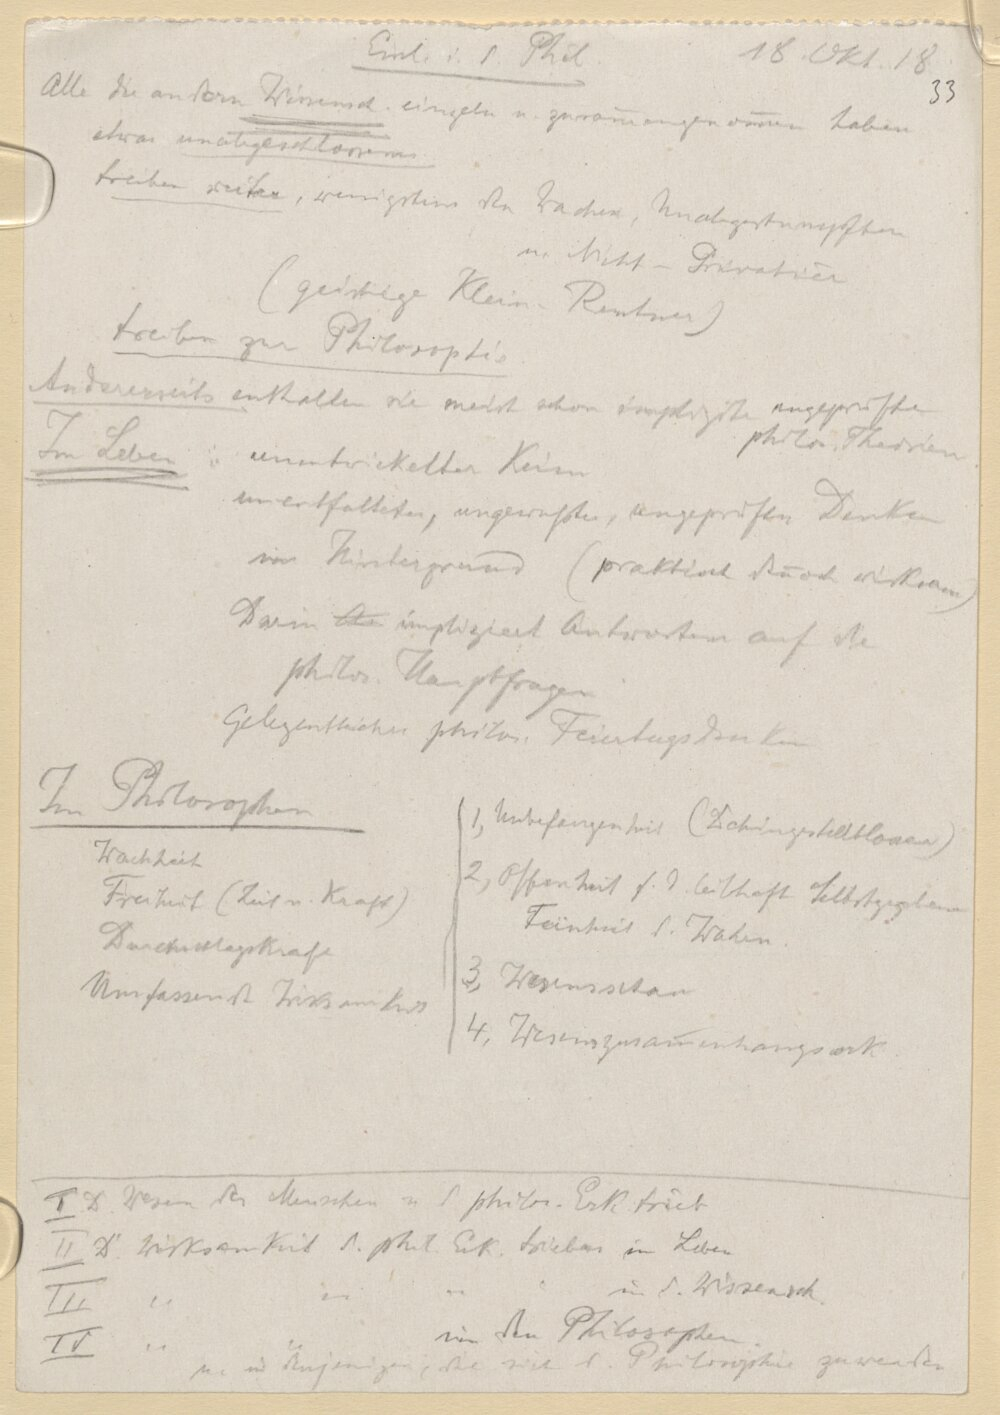 Einl. i. d. Phil. 18. Okt. 18
33
Alle die andern Wissensch. einzeln u. zusam̅engenom̅en haben
etwas unabgeschlossenes
treiben weiter, wenigstens den Wachen, Unabgestumpften
u. Nicht-Privatier
(geistige Klein-Rentner)
treiben zur Philosophie.
Andererseits enthalten sie meist schon implizite ungeprüfte
philos. Theorien
Im Leben : unentwickelter Keim
unentfaltetes, ungewußtes, ungeprüftes Denken
im Hintergrund (praktisch den̅och wirksam)
Darin impliziert Antworten auf die
philos. Hauptfragen
Gelegentliches philos. Feiertagsdenken
Im Philosophen
Wachheit
Freiheit (Zeit u. Kraft)
Durchschlagskraft
Umfassende Wirksamkeit
1, Unbefangenheit
2, Offenheit f. d. leibhaft Selbstgegebene
Feinheit d.
3, Wesensschau
4, Wesenszusam̅enhangserk.
I D. Wesen des Menschen u d philos. Erk. trieb
II D. Wirksamkeit d. phil. Erk. triebes im Leben
III " " " " in d. Wissensch.
IV " " im den Philosophen.
u. in denjenigen, die sich d. Philosophie zuwenden